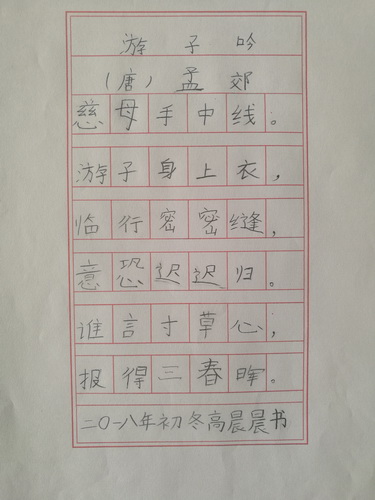 游子吟
（唐）孟郊
慈母手中线。
游子身上衣，
临行密密缝，
意恐迟迟归。
谁言寸草心；
报得三春晖。
二〇一八年初冬高晨晨书